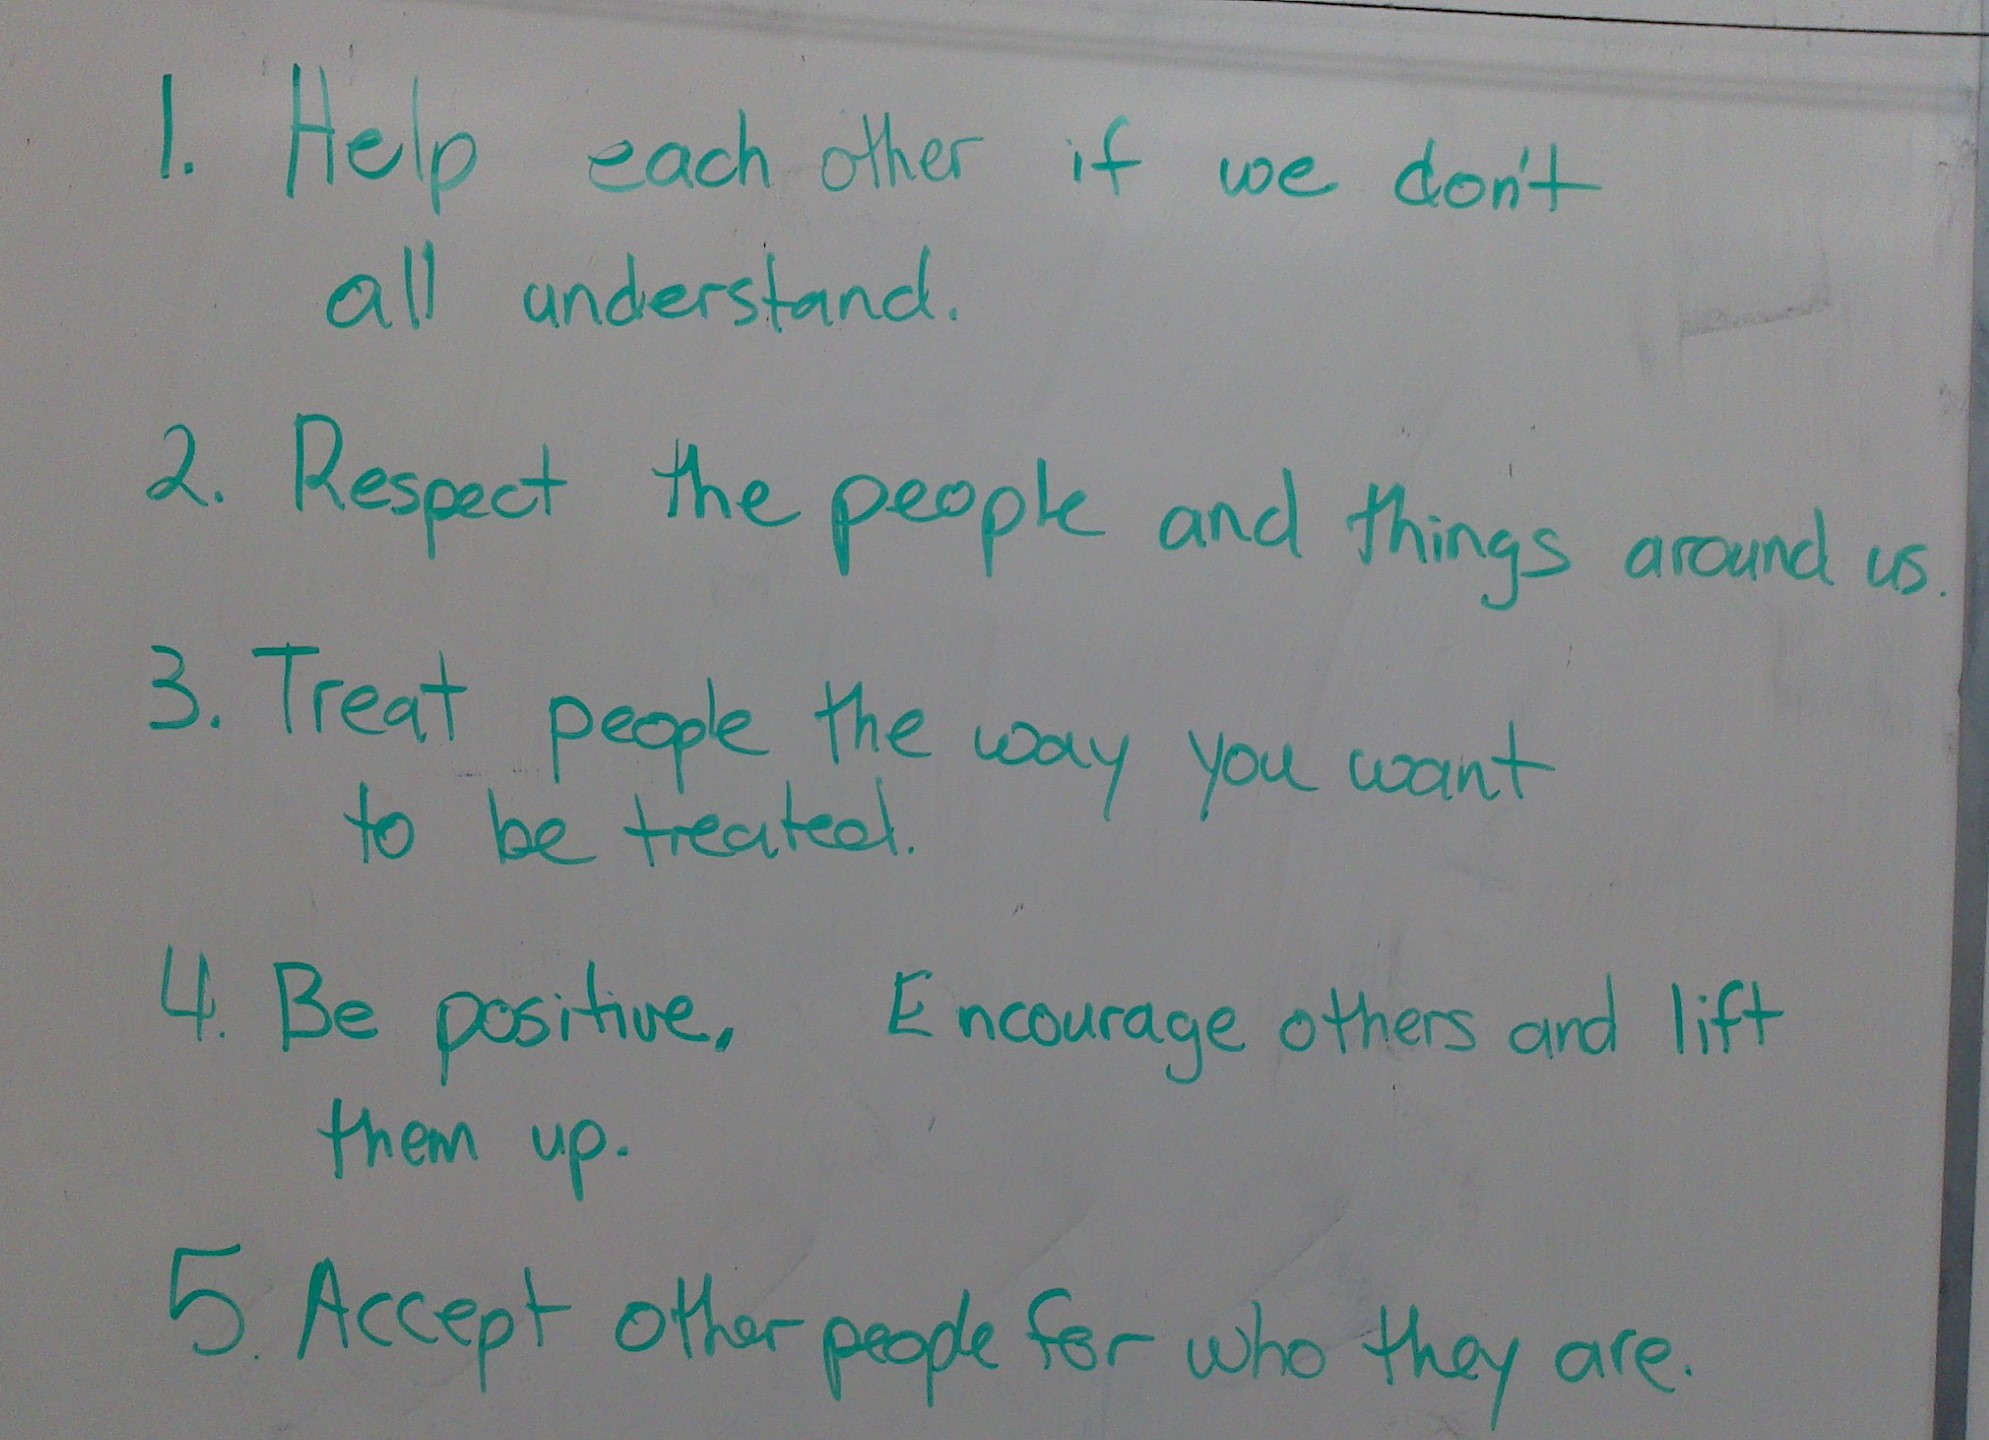 1. Help each other if we don't
all understand.
2. Respect the people and things around us.
3. Treat people the way you want
to be treated.
4. Be positive, Encourage others and lift
them up.
5. Accept other people for who they are.